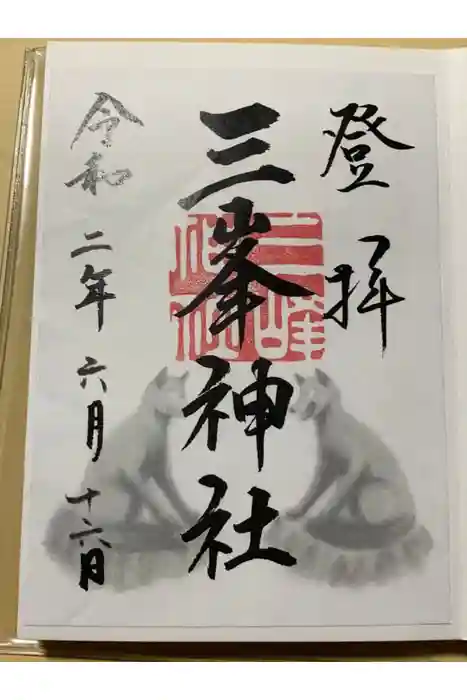 登拝
三峯神社
三峰神社
令和二年六月十六日